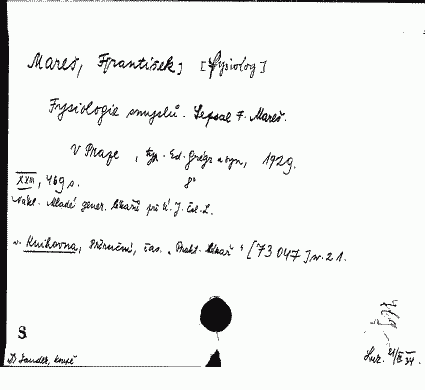 Mareš, František] [Fysiolog]
Fysiologie smyslů. Sepsal F. Mareš.
V Praze, typ. Ed. Grégr a syn, 1929.
XXIII, 469 s. 8°
Nákl. Mladé gener. lékařů při Ú. J. čsl. L.
v. Knihovna, Příruční, čas. „Prakt. lékař" [73 047] sv. 21.
S